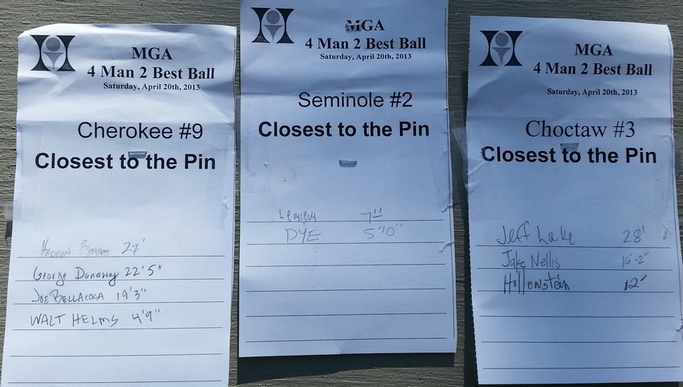 MGA
4 Man 2 Best Ball
Saturday, April 20th, 2013
Cherokee #9
Closest to the Pin
27'
George Dunaway 22'5"
Joe BELLACOCA 19'3"
WALT HELMS 4'9"
MGA
4 Man 2 Best Ball
Saturday, April 20th, 2013
Seminole #2
Closest to the Pin
DYE 5'10"
MGA
4 Man 2 Best Ball
Saturday, April 20th, 2013
Choctaw #3
Closest to the Pin
Jeff Lake 28'
Jake Nellis
Hollenstein